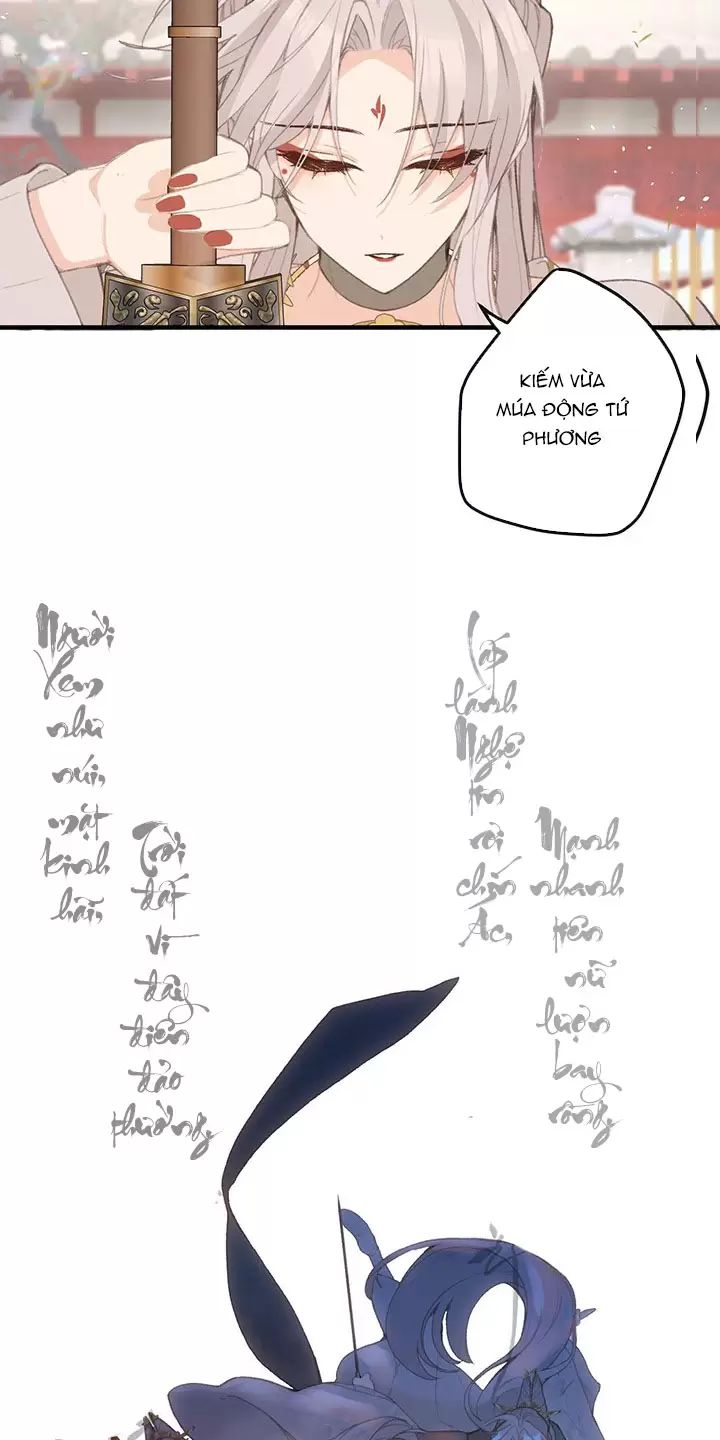 KIẾM VỪA
MÚA ĐỘNG TỨ
PHƯƠNG
Người
Xem
như
núi,
mặt
kinh
hãi,
Trời
đất
vì
đây
điên
đảo
thường,
Lấp
lánh
Nghệ
tn
rồi
chín
Ác,
Mạnh
nhanh
tiên
nữ
lượn
bay
rồng,